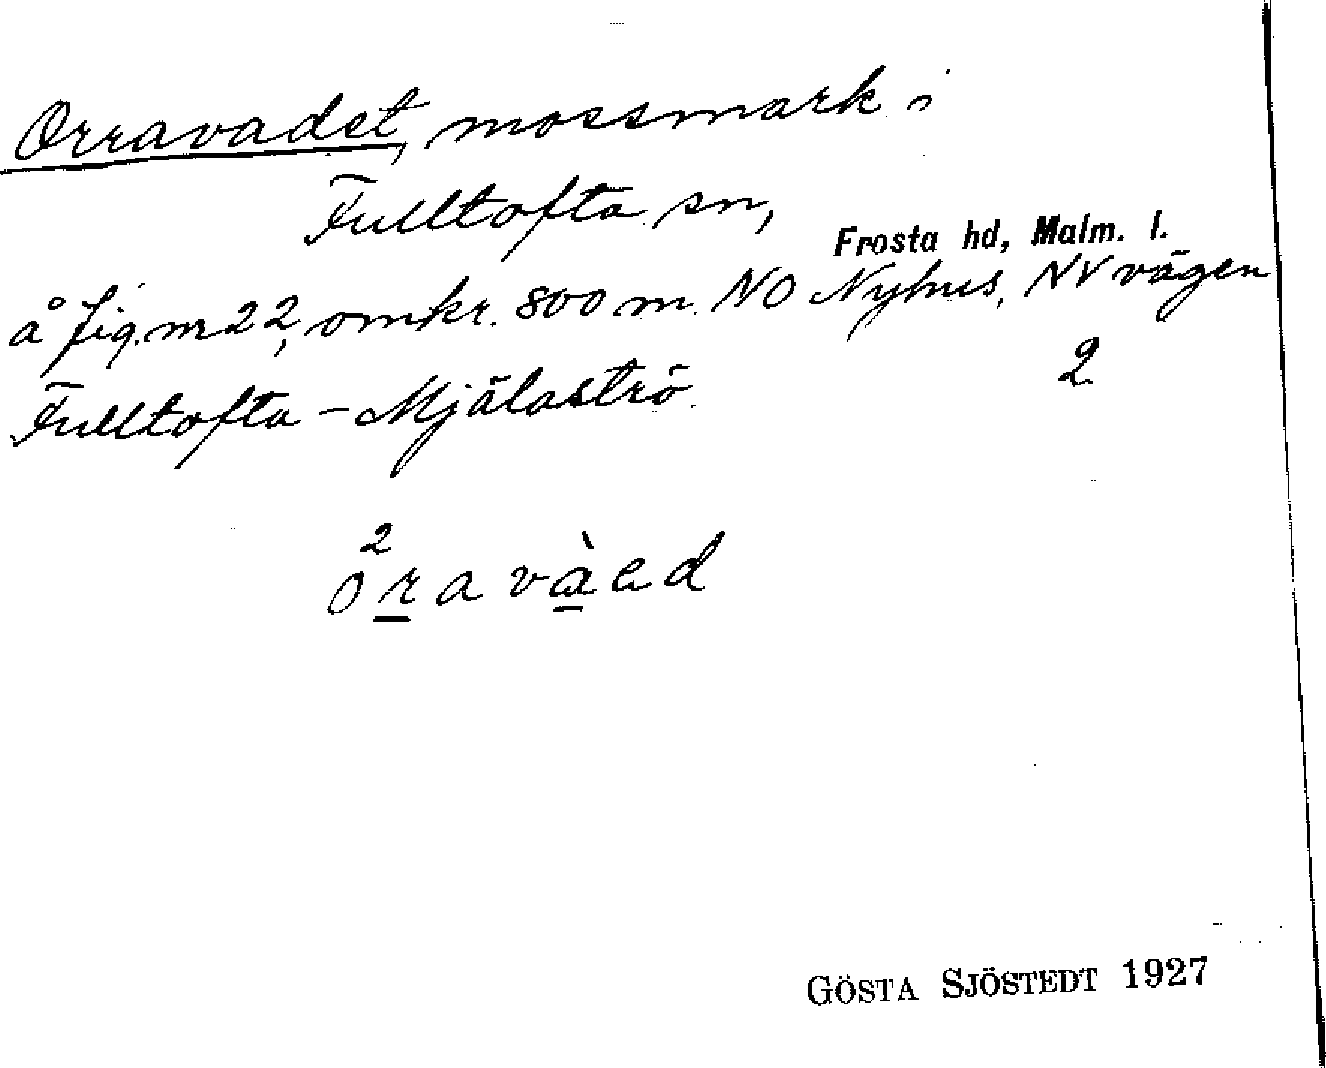 Orravadet, mossmark i
Fulltofta sn,
Frosta hd, Malm. l.
å fig. nr 22, omkr. 800 m. NO Nyhus, NV vägen
Fulltofta - Mjälaströ.
2
2
o r a v à e d
GÖSTA SJÖSTEDT 1927